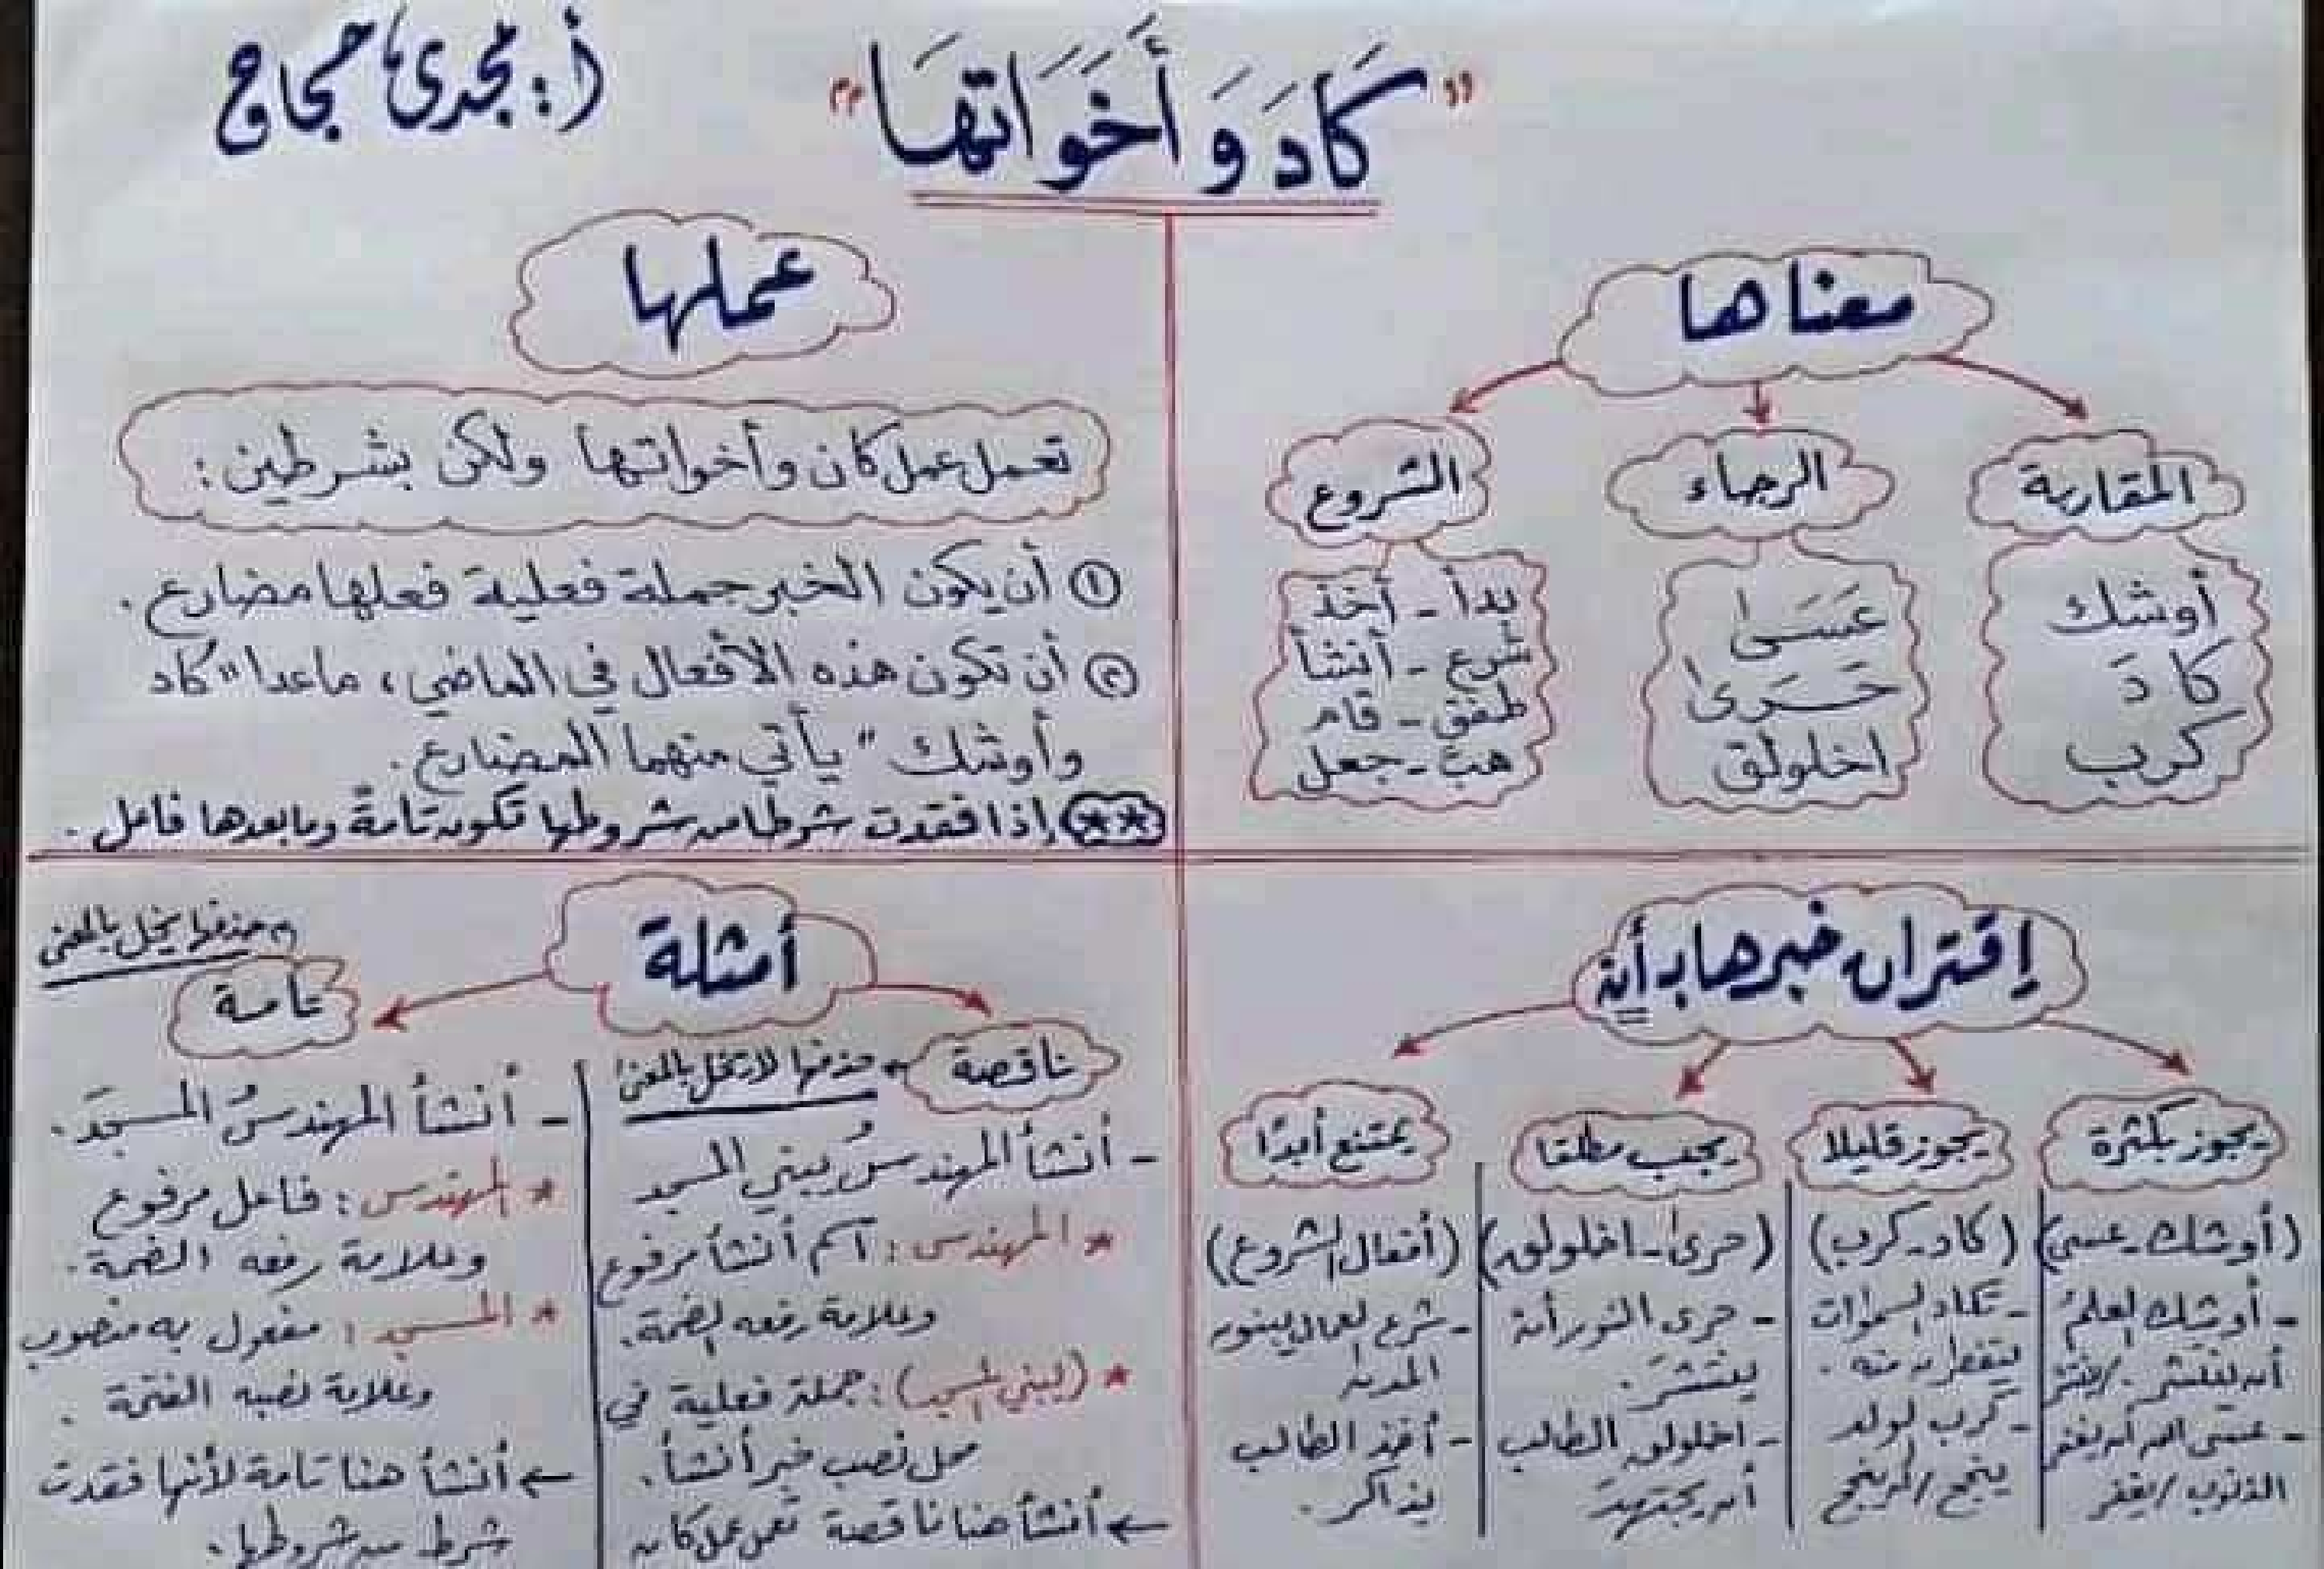 "كَادَ وَ أَخَوَاتهَا"
أ: مجدى حجاج
معناها
المقاربة
أوشك
كادَ
كرب
الرجاء
عَسَى
حَرَى
اخلولق
الشروع
بدأ - أخذ
شرع - أنشأ
طفق - قام
هبّ - جعل
عملها
تعمل عمل كان وأخواتها ولكن بشرطين:
① أن يكون الخبر جملة فعلية فعلها مضارع.
② أن تكون هذه الأفعال في الماضي، ماعدا "كاد
وأوشك" يأتي منهما المضارع.
** إذا فقدت شرطا من شروطها تكون تامةً وما بعدها فاعل.
إقتران خبرها بـ أن
يجوز بكثرة
(أوشك - عسى)
- أوشك العلمُ
أن ينتشر. / ينتشر
- عسى الله أن يغفر
الذنوب / يغفر
يجوز قليلا
(كاد - كرب)
- تكاد السموات
يتفطرن منه.
- كرب الولد
ينجح / أن ينجح
يجب مطلقا
(حرى - اخلولق)
- حرى النور أن
ينتشرَ.
- اخلولق الطالب
أن يجتهدَ
يمتنع أبدًا
(أفعال الشروع)
- شرع العمال يبنون
المدن
- أخذ الطالب
يذاكر.
أمثلة
ناقصة ← حذفها لا يخل بالمعنى
- أنشأ المهندسُ يبني المسجد
* المهندس: اسم أنشأ مرفوع
وعلامة رفعه الضمة.
* (يبني المسجد): جملة فعلية في
محل نصب خبر أنشأ.
← أنشأ هنا ناقصة تعمل عمل كان
حذفها يخل بالمعنى
تامة
- أنشأ المهندسُ المسجدَ.
* المهندس: فاعل مرفوع
وعلامة رفعه الضمة.
* المسجد: مفعول به منصوب
وعلامة نصبه الفتحة.
← أنشأ هنا تامة لأنها فقدت
شرط من شروطها.